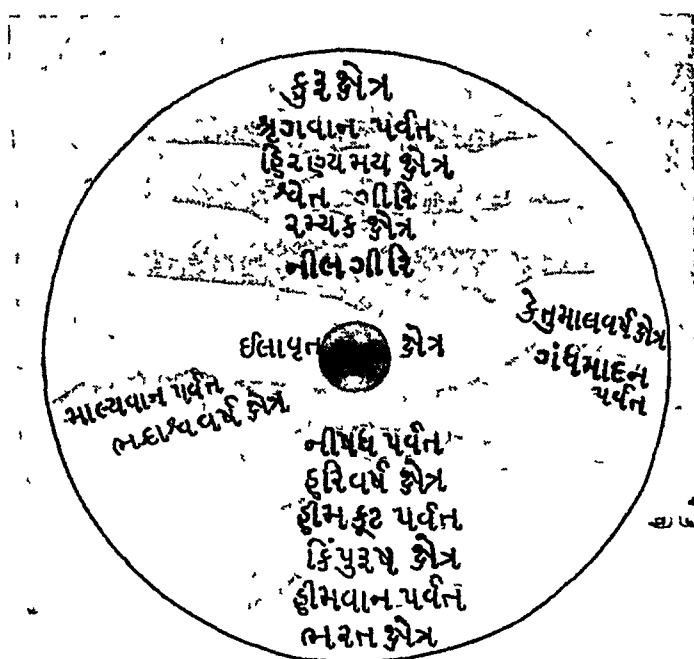 કુરુ ક્ષેત્ર
શ્રૃગવાન પર્વત
હિરણ્યમય ક્ષેત્ર
શ્વેત ગીરિ
રમ્યક ક્ષેત્ર
નીલગીરિ
કેતુમાલવર્ષ ક્ષેત્ર
ગંધમાદન
પર્વત
ઈલાવૃત ક્ષેત્ર
માલ્યવાન પર્વત
ભદ્રાશ્વ વર્ષ ક્ષેત્ર
નીષધ પર્વત
હરિવર્ષ ક્ષેત્ર
હીમકૂટ પર્વત
કિંપુરુષ ક્ષેત્ર
હીમવાન પર્વત
ભરત ક્ષેત્ર